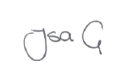 Jsa G